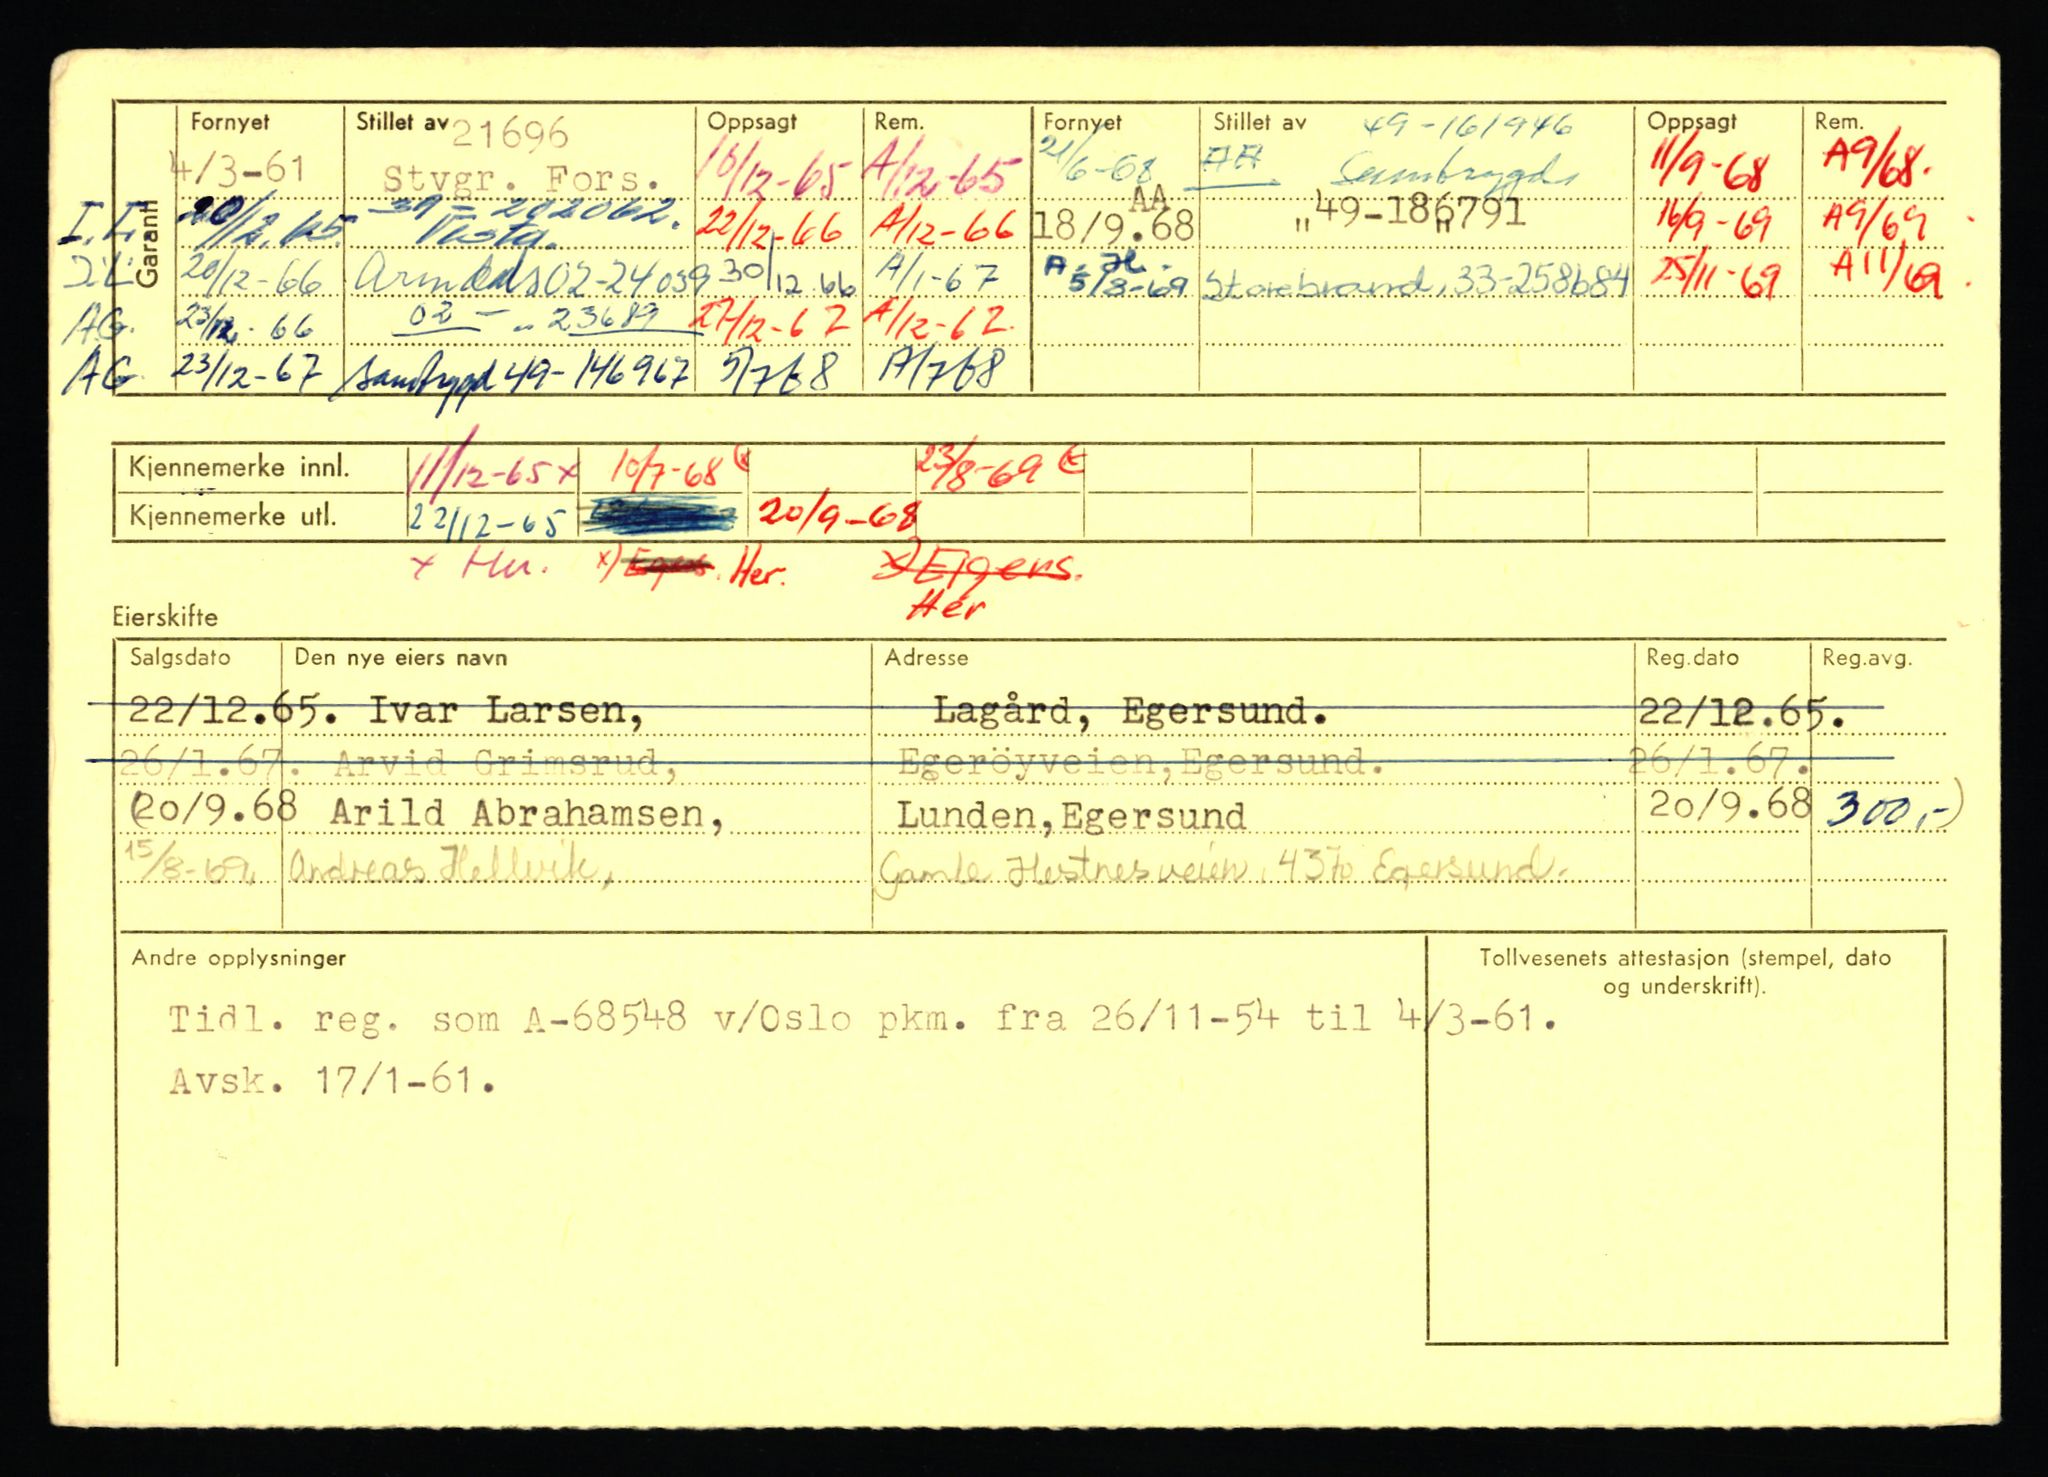 Garanti
Fornyet Stillet av 21696 Oppsagt Rem. Fornyet Stillet av 49-161946 Oppsagt Rem.
4/3-61 Stvgr. Fors. 16/12-65 A/12-65 21/6-68 AA Sambrygd 11/9-68 A9/68.
I.L. 20/12.65 39-292062. Vesta. 22/12-66 A/12-66 18/9.68 AA „49-186791 16/9-69 A9/69
I.L. 20/12-66 02-24039 30/12 66 A/1-67 A.H. 5/8-69 Storebrand, 33-258684 25/11-69 A11/69
AG. 23/12-66 02- „ 23689 27/12-67 A/12-67.
AG. 23/12-67 Sambrygd 49-146967 5/7 68 A/7 68
Kjennemerke innl. 11/12-65 x 10/7-68 23/8-69
Kjennemerke utl. 22/12-65 20/9-68
x Her. x) Egers. Her. x) Eigers.
Her
Eierskifte
Salgsdato Den nye eiers navn Adresse Reg.dato Reg.avg.
22/12.65. Ivar Larsen, Lagård, Egersund. 22/12.65.
26/1.67. Arvid Grimsrud, Egeröyveien,Egersund. 26/1.67.
(20/9.68 Arild Abrahamsen, Lunden,Egersund 20/9.68 300,-)
15/8-69, Andreas Hellvik, Gamle Hestnesveien, 4370 Egersund.
Andre opplysninger
Tollvesenets attestasjon (stempel, dato
og underskrift).
Tidl. reg. som A-68548 v/Oslo pkm. fra 26/11-54 til 4/3-61.
Avsk. 17/1-61.